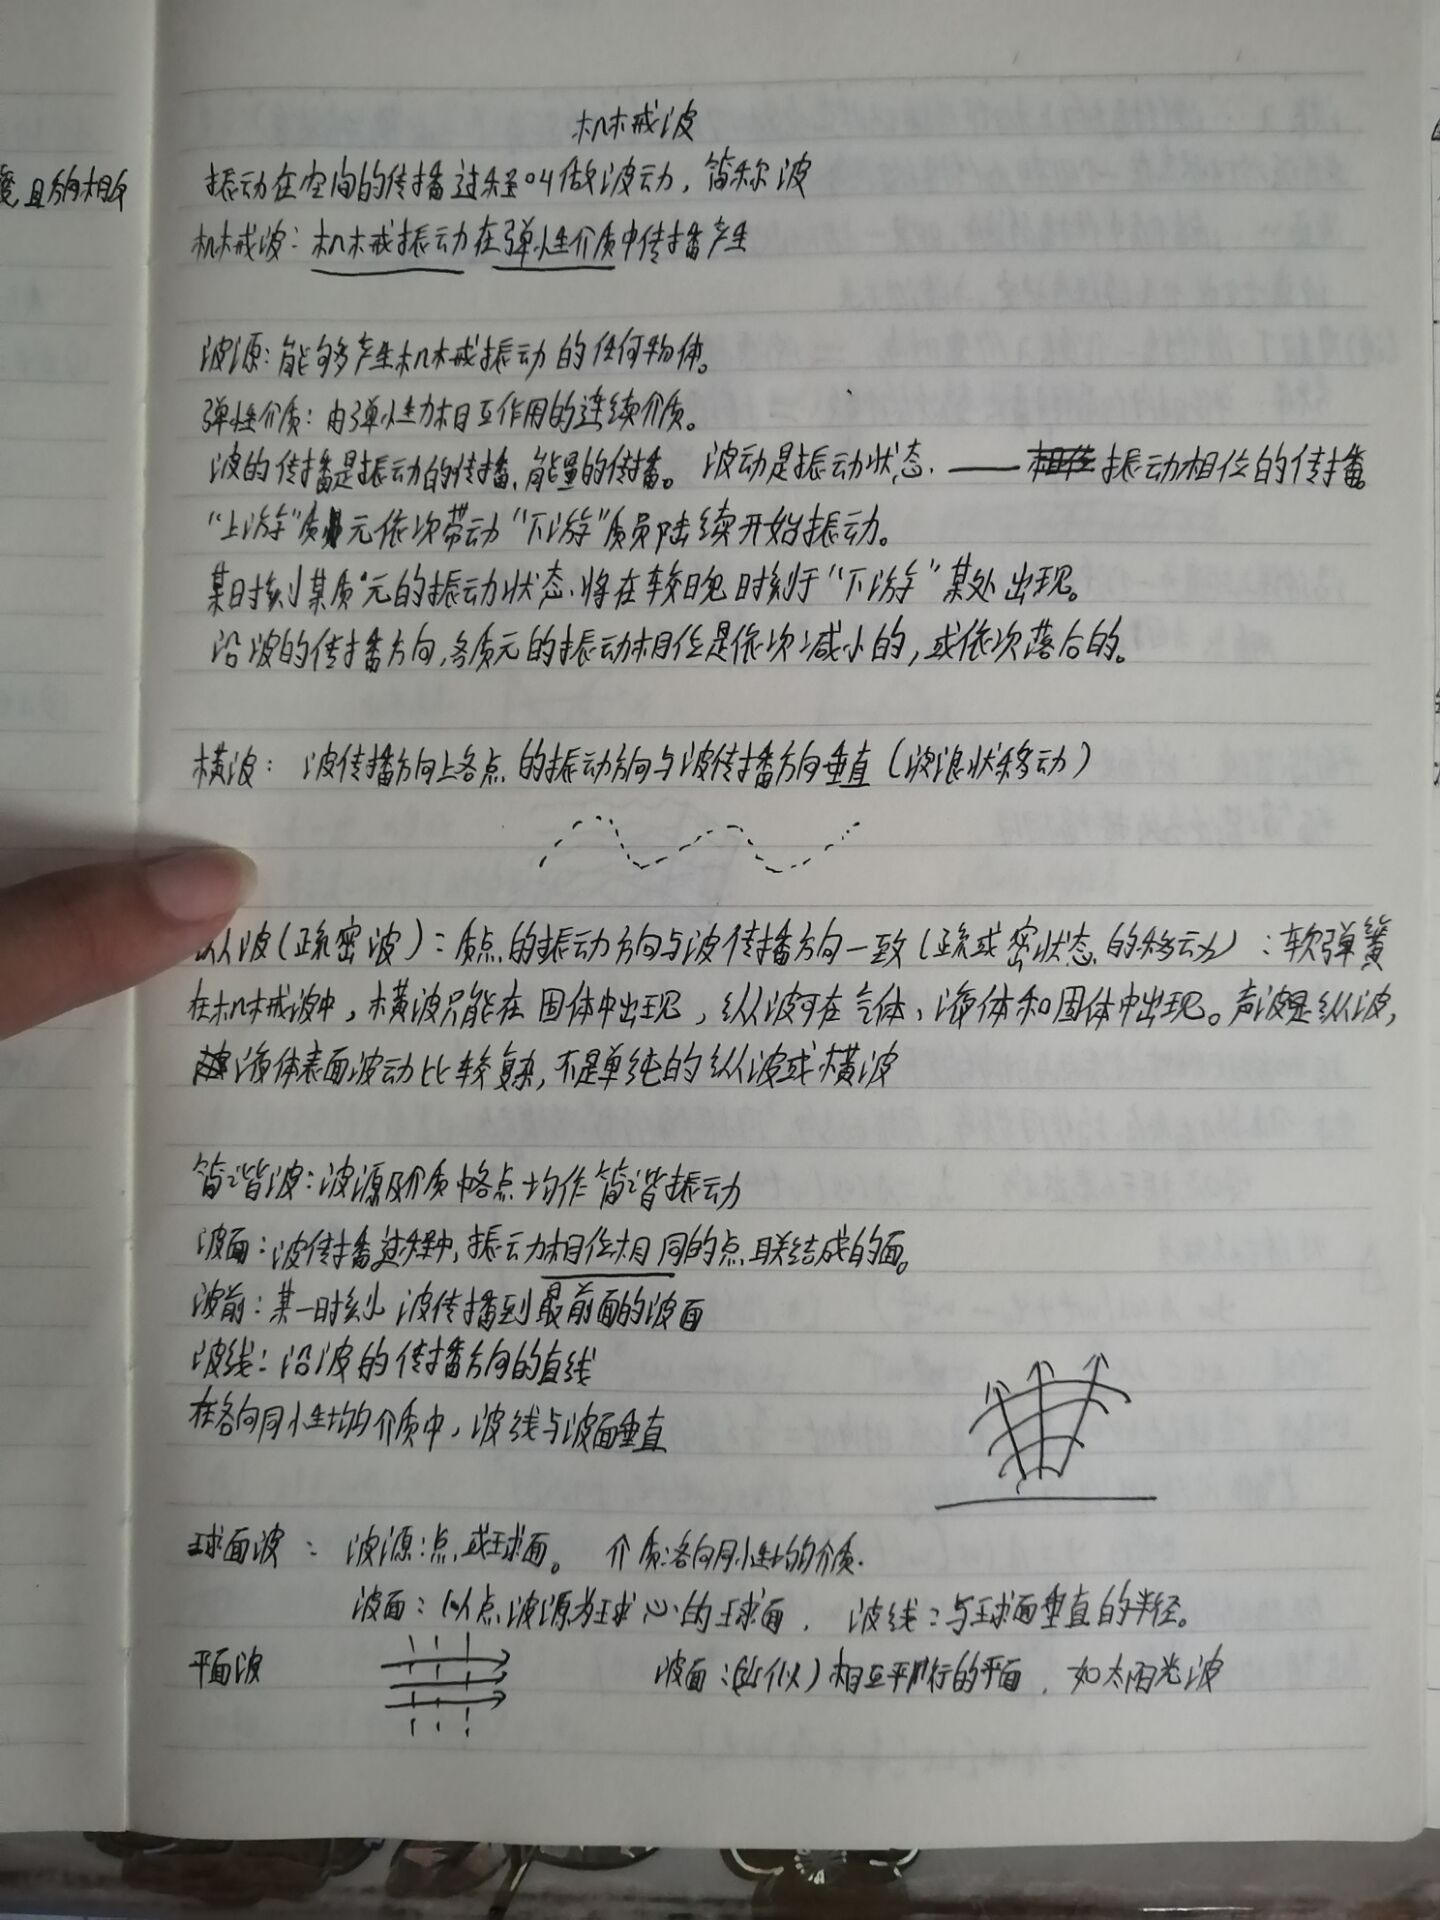 度,且方向相反
机械波
振动在空间的传播过程叫做波动,简称波
机械波:机械振动在弹性介质中传播产生
波源:能够产生机械振动的任何物体。
弹性介质:由弹性力相互作用的连续介质。
波的传播是振动的传播,能量的传播。波动是振动状态——振动相位的传播。
“上游”质元依次带动“下游”质员陆续开始振动。
某时刻某质元的振动状态将在较晚时刻于“下游”某处出现。
沿波的传播方向,各质元的振动相位是依次减小的,或依次落后的。
横波: 波传播方向上各点的振动方向与波传播方向垂直(波浪状移动)
纵波(疏密波):质点的振动方向与波传播方向一致(疏或密状态的移动):软弹簧
在机械波中,横波只能在固体中出现,纵波可在气体、液体和固体中出现。声波是纵波,
液体表面波动比较复杂,不是单纯的纵波或横波
简谐波:波源及介质中各点均作简谐振动
波面:波传播过程中,振动相位相同的点联结成的面。
波前:某一时刻波传播到最前面的波面
波线:沿波的传播方向的直线
在各向同性均匀介质中,波线与波面垂直
球面波: 波源:点或球面。 介质:各向同性均匀介质.
波面:以点波源为球心的球面. 波线:与球面垂直的半径。
平面波 波面:(近似)相互平行的平面. 如太阳光波